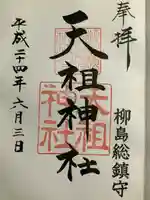 奉拝
柳島総鎮守
天祖神社
天祖
神社
平成二十四年六月三日